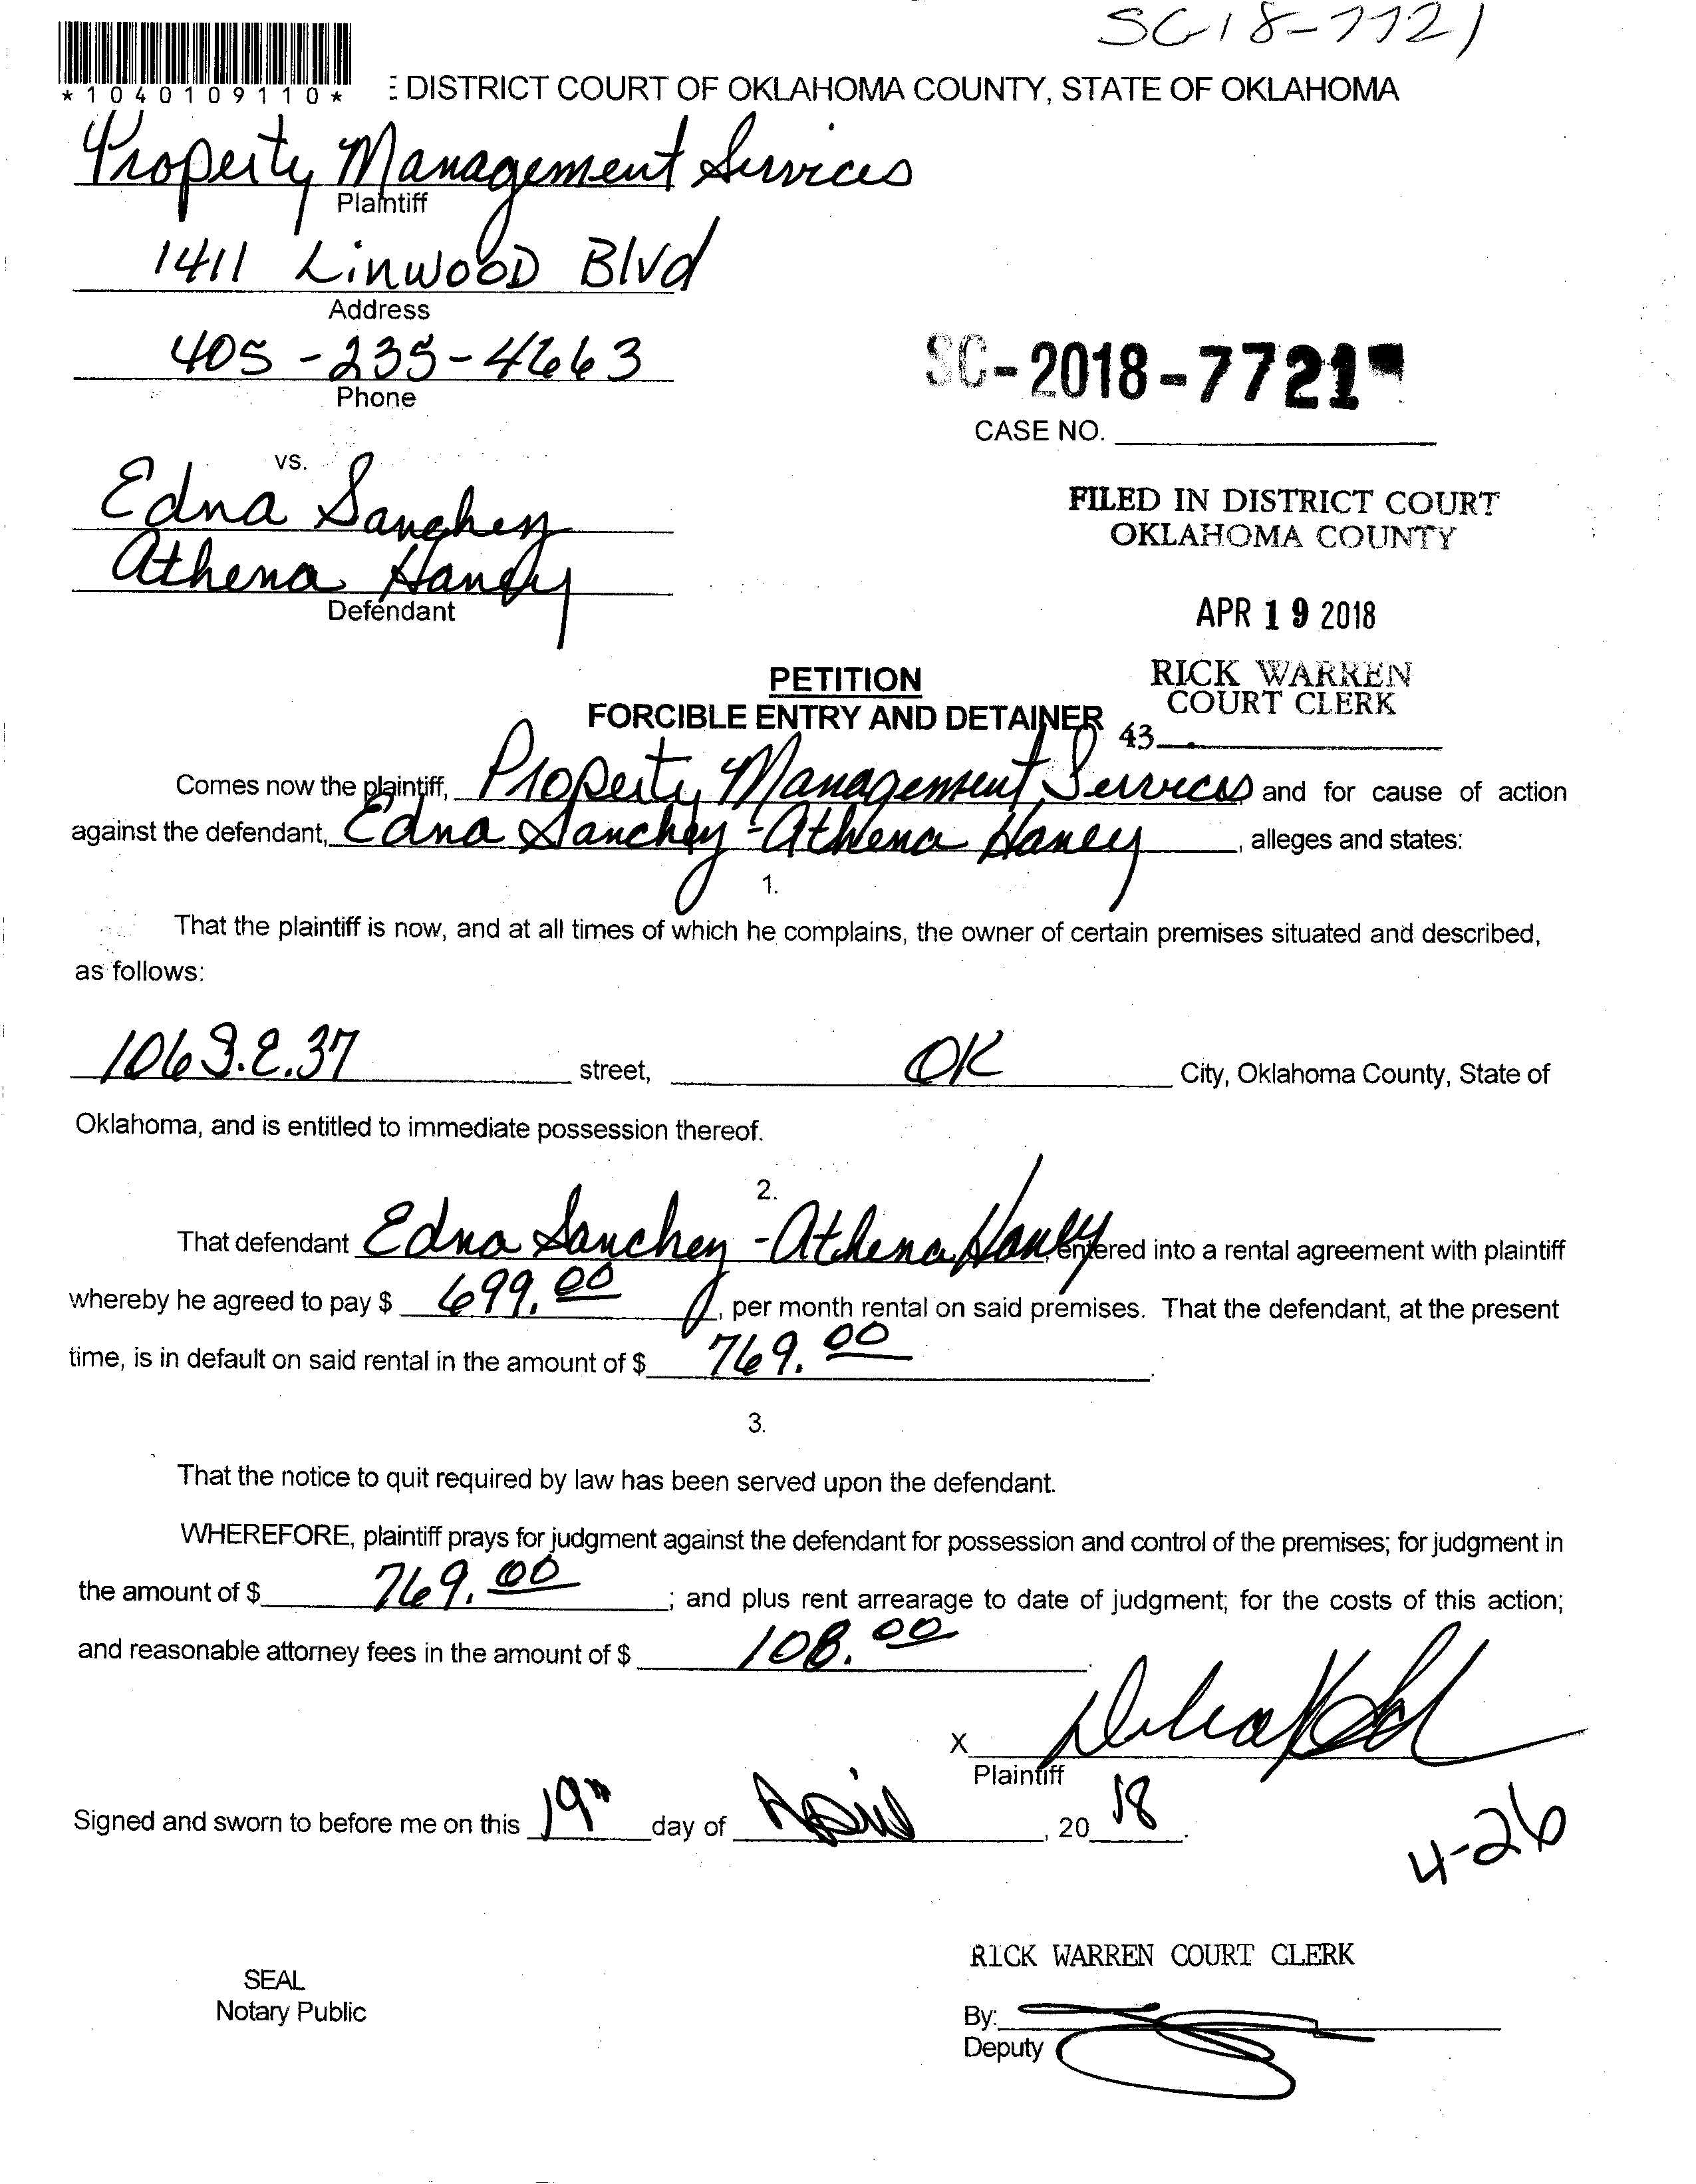 SC18-7721
*1040109110*
: DISTRICT COURT OF OKLAHOMA COUNTY, STATE OF OKLAHOMA
Property Management Services
Plaintiff
1411 Linwood Blvd
Address
405-235-4663
Phone
SC-2018-7721
CASE NO.
vs.
Edna Sanchez
Athena Haney
Defendant
FILED IN DISTRICT COURT
OKLAHOMA COUNTY
APR 19 2018
RICK WARREN
COURT CLERK
43
PETITION
FORCIBLE ENTRY AND DETAINER
Comes now the plaintiff, Property Management Services and for cause of action
against the defendant, Edna Sanchez - Athena Haney, alleges and states:
1.
That the plaintiff is now, and at all times of which he complains, the owner of certain premises situated and described,
as follows:
106 S.E. 37 street, OK City, Oklahoma County, State of
Oklahoma, and is entitled to immediate possession thereof.
2.
That defendant Edna Sanchez - Athena Haney, entered into a rental agreement with plaintiff
whereby he agreed to pay $ 699.00, per month rental on said premises. That the defendant, at the present
time, is in default on said rental in the amount of $ 769.00.
3.
That the notice to quit required by law has been served upon the defendant.
WHEREFORE, plaintiff prays for judgment against the defendant for possession and control of the premises; for judgment in
the amount of $ 769.00; and plus rent arrearage to date of judgment; for the costs of this action;
and reasonable attorney fees in the amount of $ 108.00.
X
Plaintiff
Signed and sworn to before me on this 19th day of April, 20 18.
4-26
RICK WARREN COURT CLERK
SEAL
Notary Public
By:
Deputy